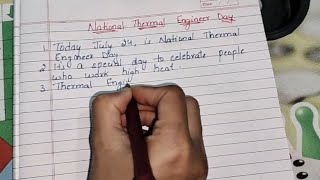 National Thermal Engineer Day
1. Today July 24, is National Thermal
Engineer Day
2. It's a special day to celebrate people
who work high heat.
3. Thermal Engi